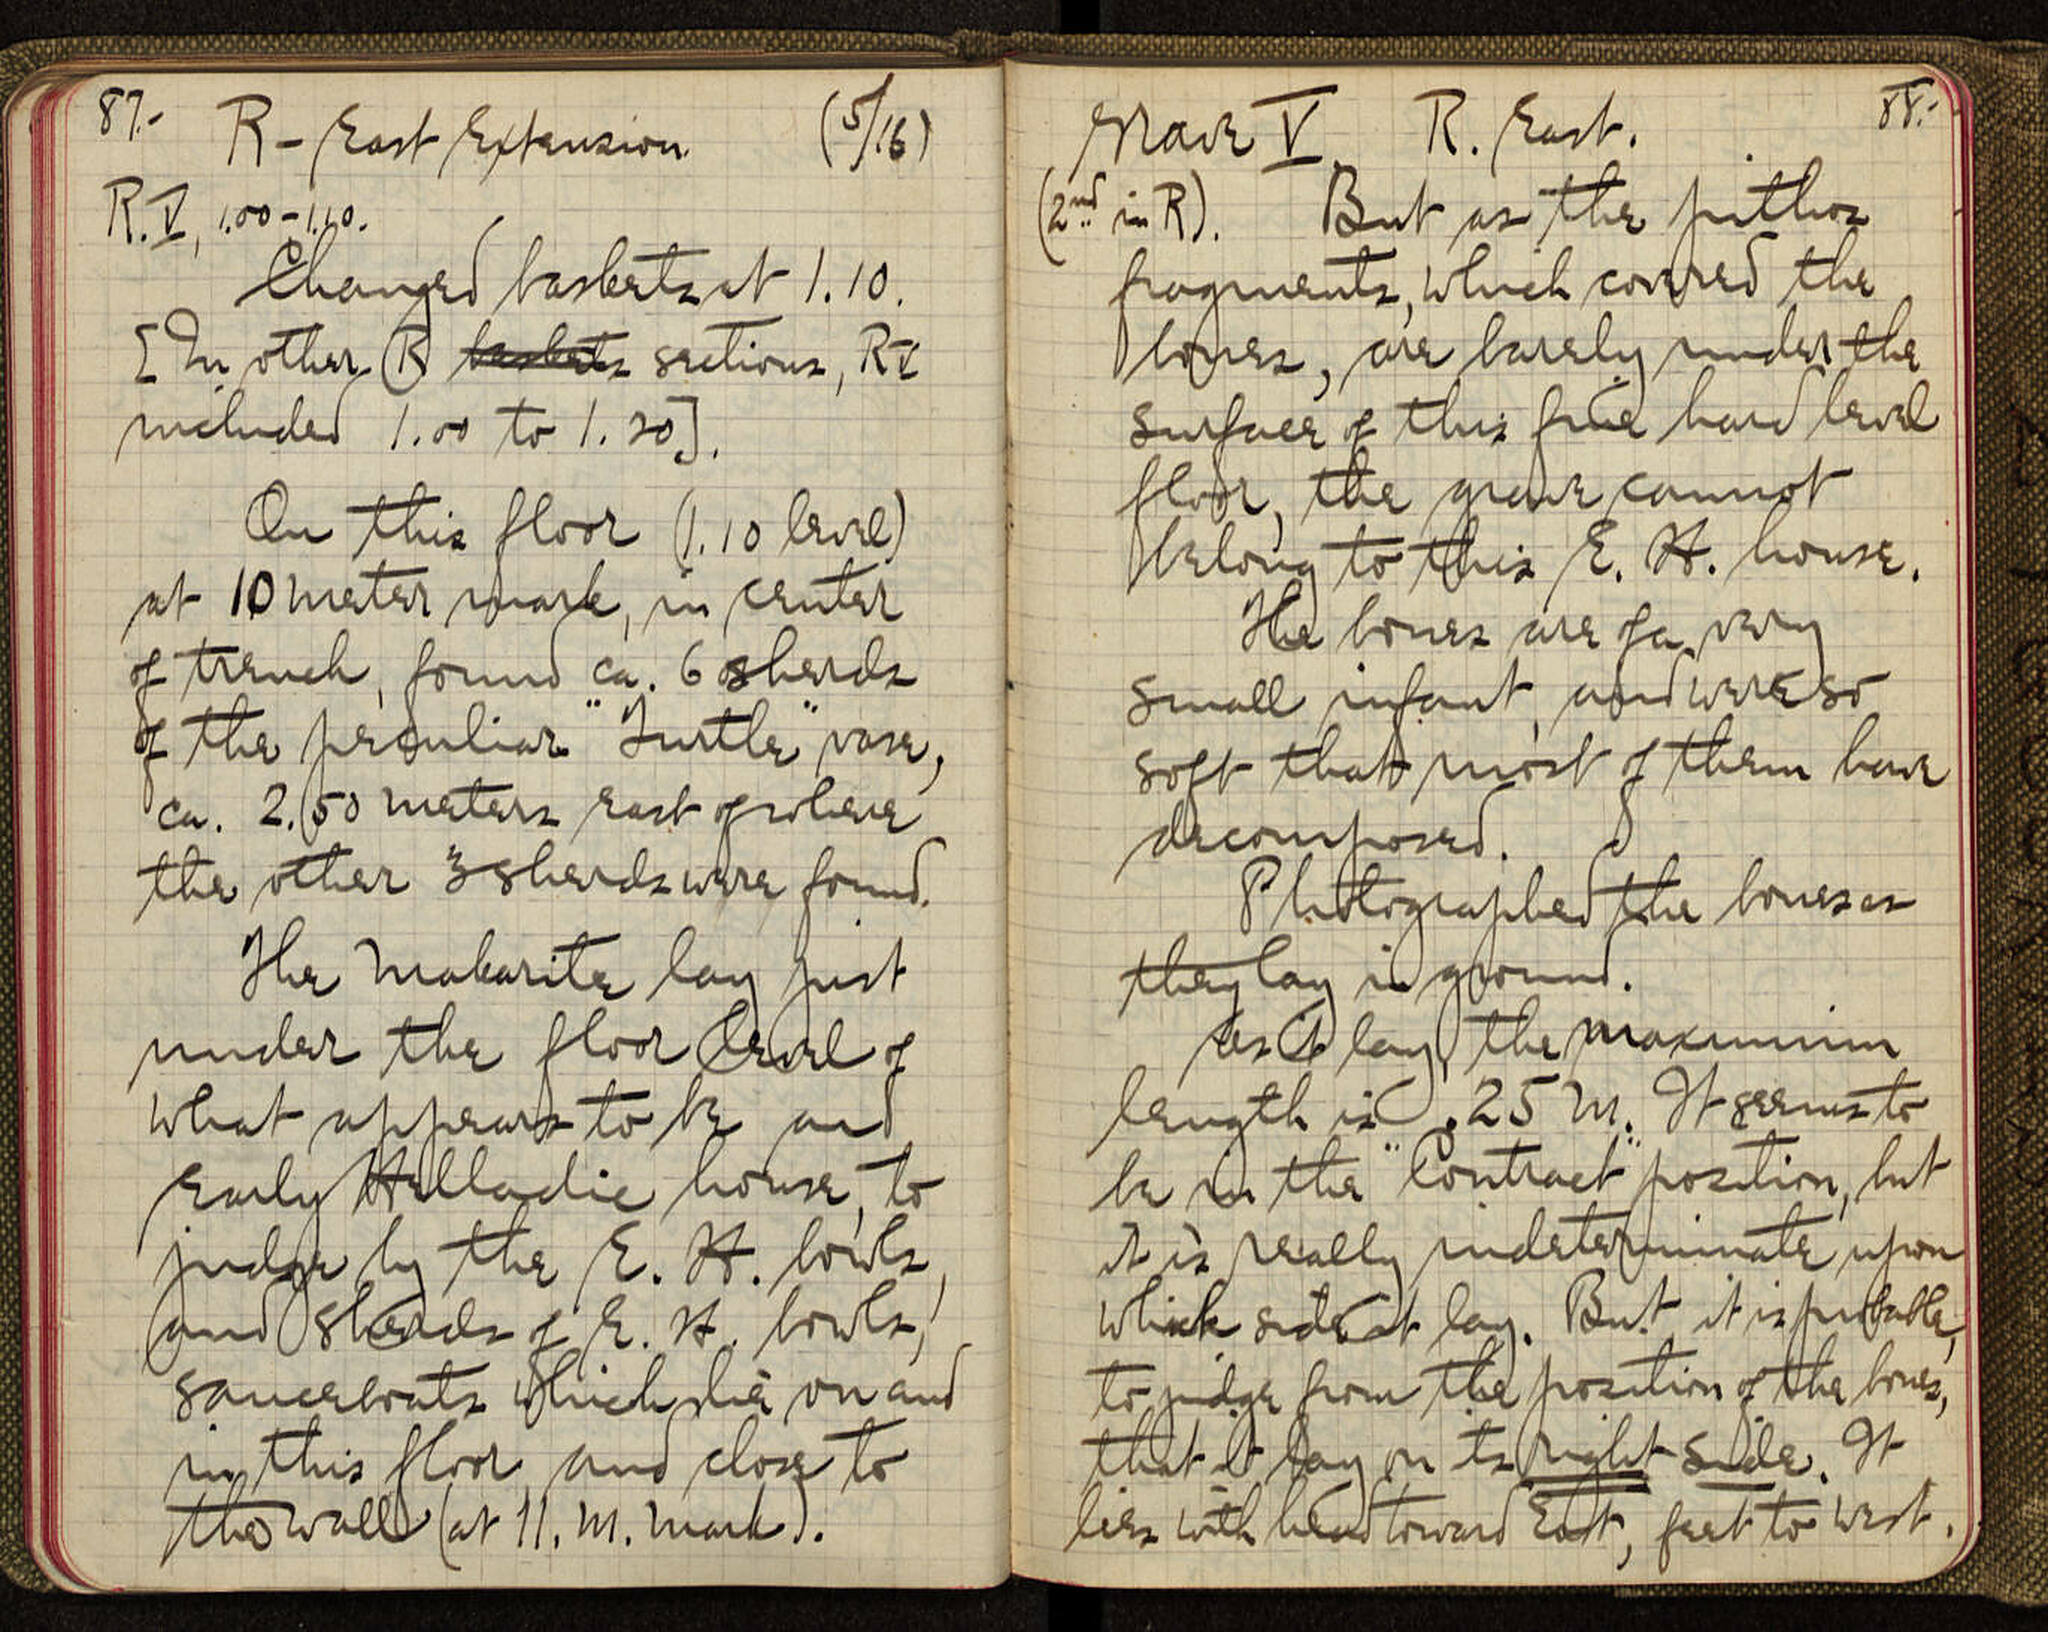 87.-
R - East Extension (5/16)
R.V, 1.00-1.10.
Changed baskets at 1.10.
[In other R baskets sections, RV
included 1.00 to 1.20].
On this floor (1.10 level)
at 10 meter mark, in center
of trench, found ca. 6 sherds
of the peculiar "Turtle" vase,
ca. 2.50 meters east of where
the other 3 sherds were found.
The Makarite lay just
under the floor level of
what appears to be and
early Helladic house, to
judge by the E. H. bowls,
and sherds of E. H. bowls,
sauceboats which lie on and
in this floor, and close to
the wall (at 11. m. mark).
88.-
Grave V. R. East.
(2nd in R). But as the pithos
fragments, which covered the
bones, are barely under the
surface of this fine hard level
floor, the grave cannot
belong to this E. H. house.
The bones are of a very
small infant, and were so
soft that most of them have
decomposed.
Photographed the bones as
they lay in ground.
As it lay, the maximum
length is .25 m. It seems to
be in the "Contract" position, but
it is really indeterminate upon
which side it lay. But it is probable,
to judge from the position of the bones,
that it lay on its right side. It
lies with head toward East, feet to west.